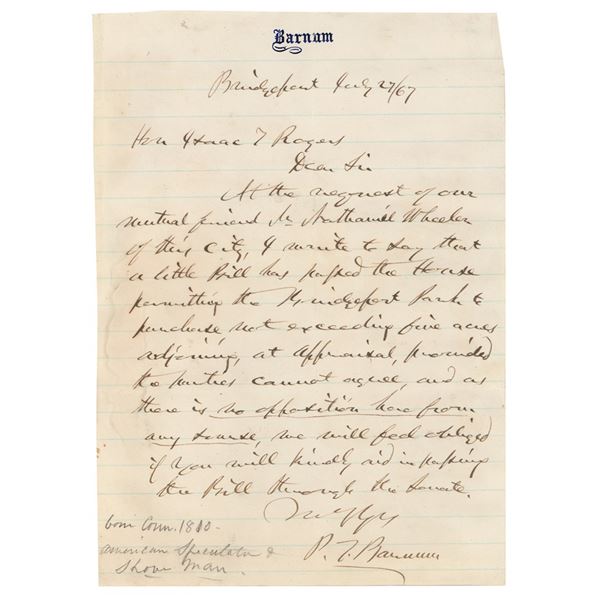 Barnum
Bridgeport July 27/67
Hon Isaac T Rogers
Dear Sir
At the request of our
mutual friend Mr Nathaniel Wheeler
of this City, I write to say that
a little Bill has passed the House
permitting the Bridgeport Park to
purchase not exceeding five acres
adjoining, at appraisal, provided
the parties cannot agree, and as
there is no opposition here from
any source, we will feel obliged
if you will kindly aid in passing
the Bill through the Senate.
P. T. Barnum
born Conn. 1810-
american Speculator &
Show Man.